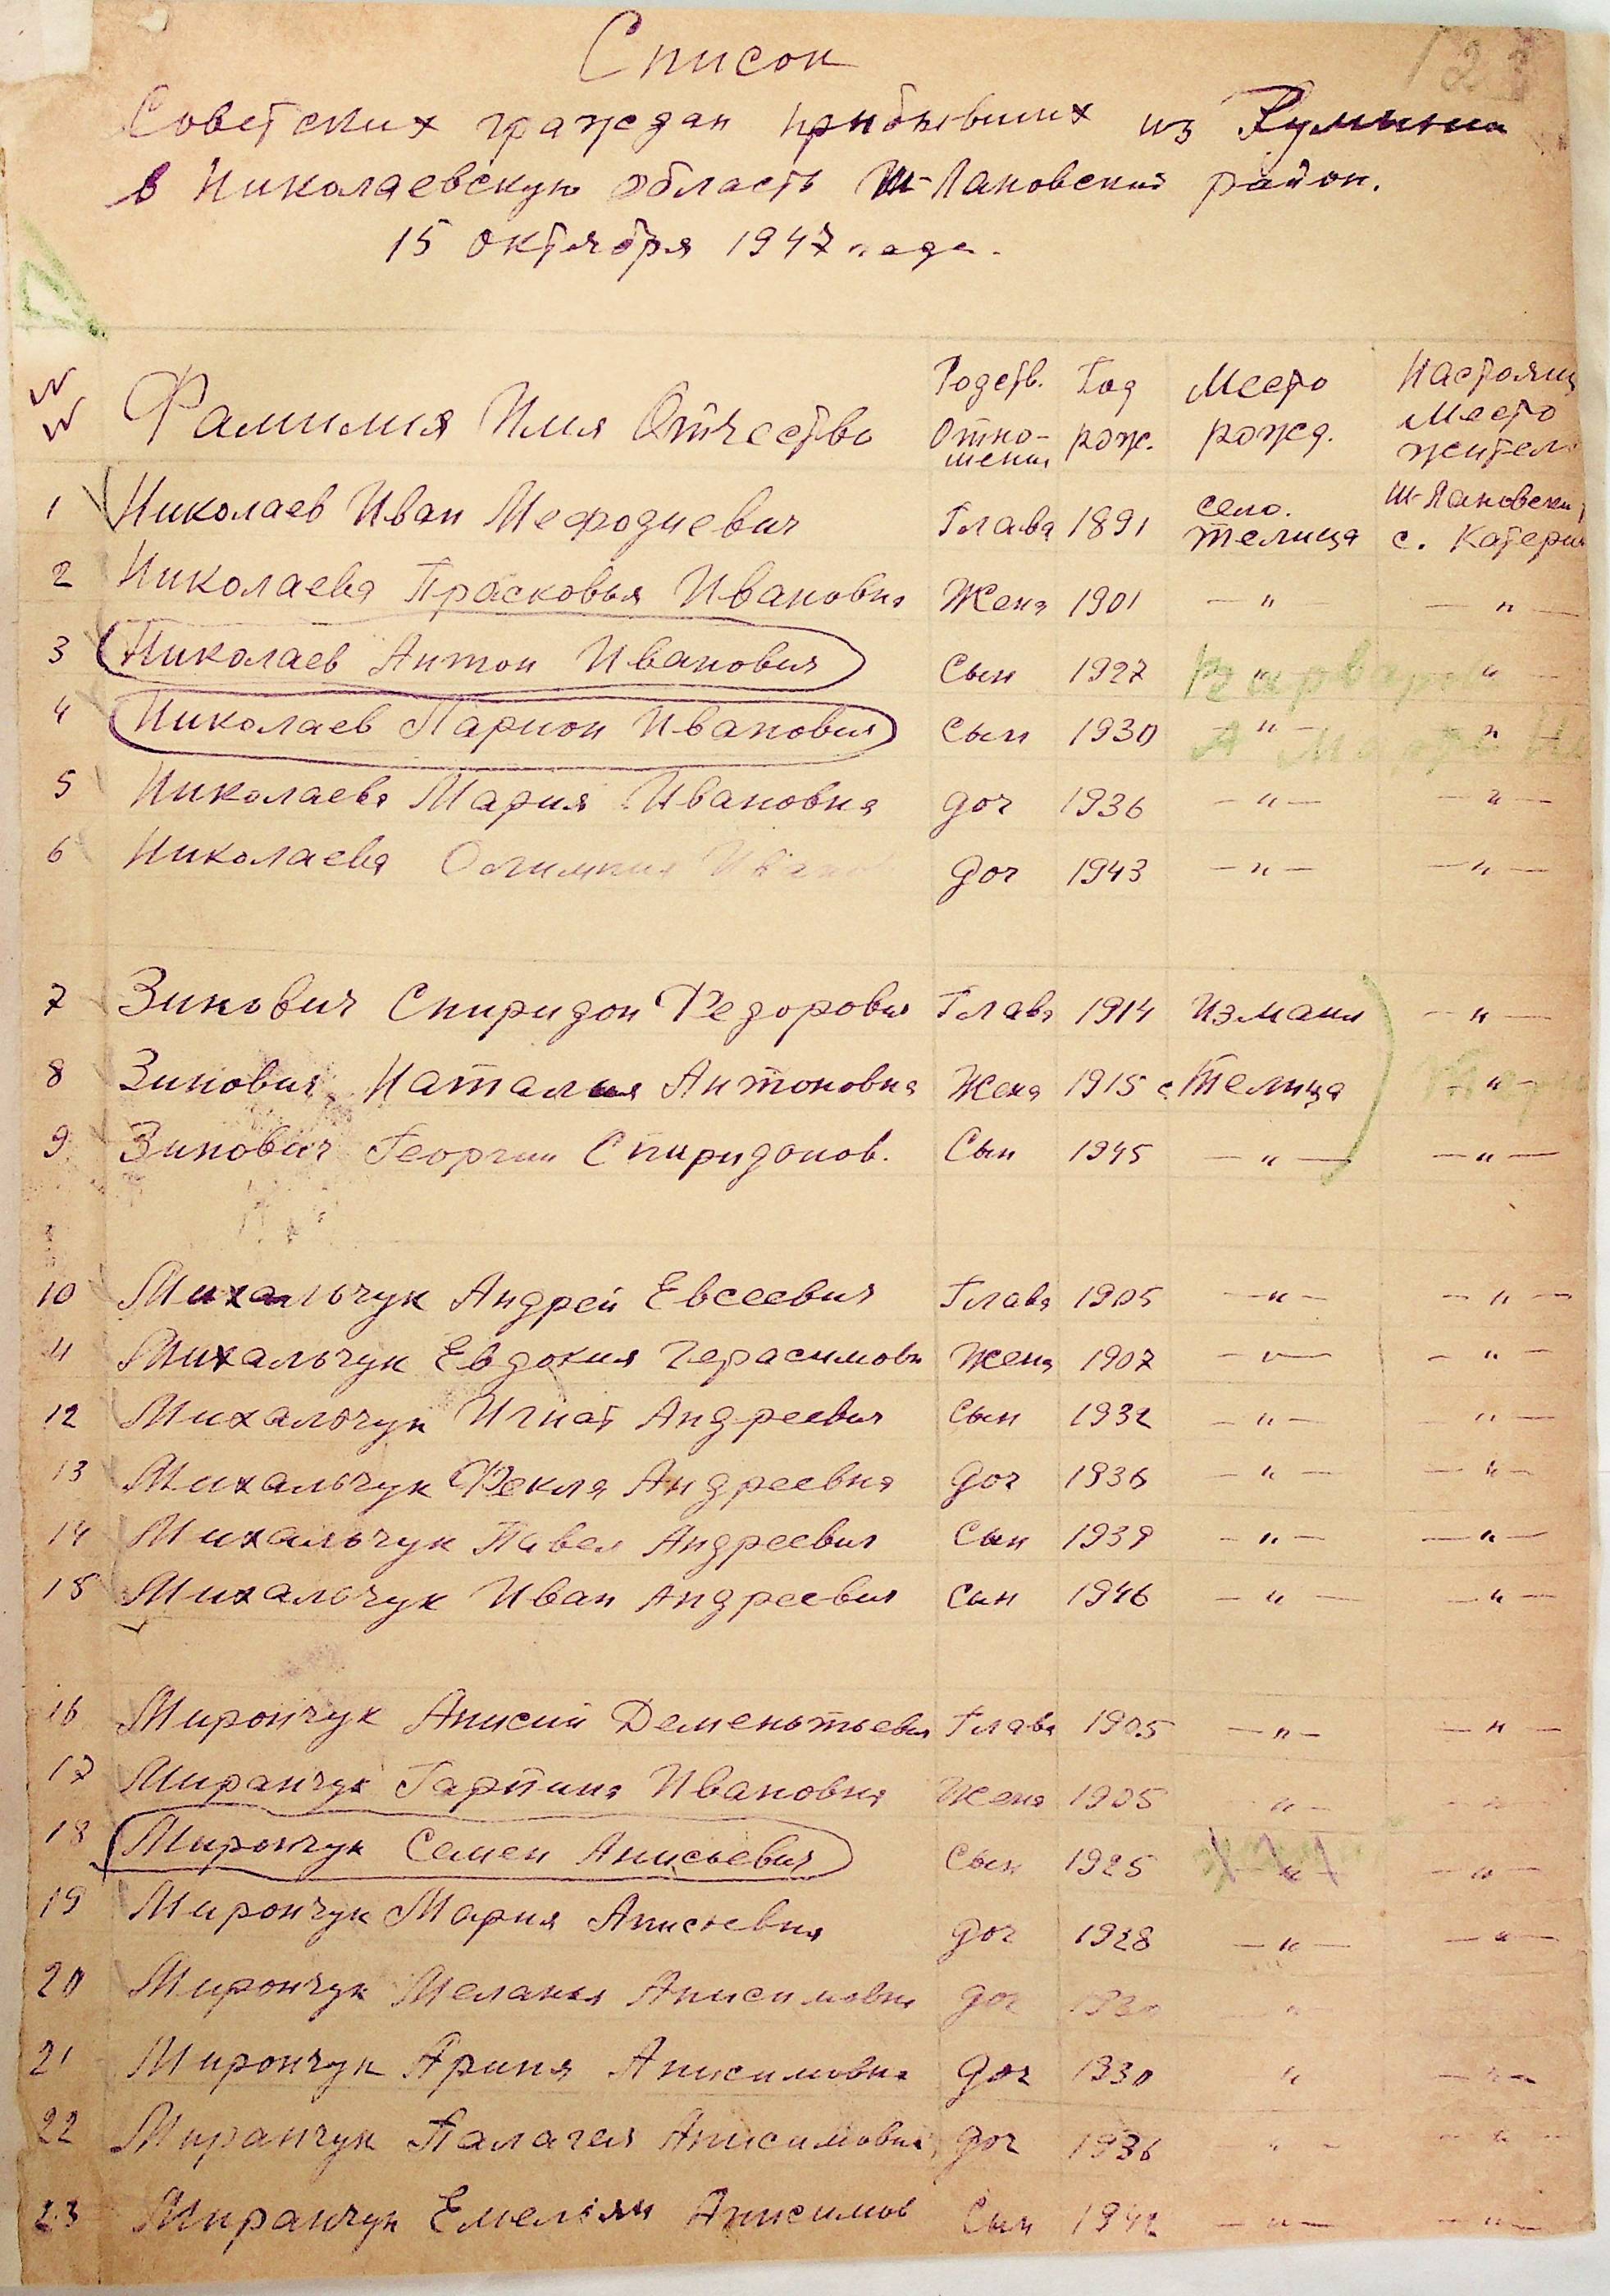 Список
Советских граждан прибывших из Румынии
в Николаевскую область Ш-Лановский район.
15 октября 1947 года.
№№ Фамилия Имя Отчество Родств. Отношения Год рож. Место рожд. Настоящ Место жител
1 Николаев Иван Мефодиевич Глава 1891 село. Телица Ш-Лановски с. Катерин
2 Николаева Прасковья Ивановна Жена 1901 —"— —"—
3 Николаев Антон Иванович Сын 1927 " "—
4 Николаев Ларион Иванович Сын 1930 —"— "—
5 Николаева Мария Ивановна доч 1936 —"— —"—
6 Николаева Олимпия Ивано доч 1943 —"— —"—
7 Зинович Спиридон Федорович Глава 1914 Измаил —"—
8 Зинович Наталия Антоновна Жена 1915 с. Телица "—
9 Зинович Георгии Спиридонов. Сын 1945 —"— —"—
10 Михальчук Андрей Евсеевич Глава 1905 —"— —"—
11 Михальчук Евдокия Герасимовн Жена 1907 —"— —"—
12 Михальчук Игнат Андреевич Сын 1932 —"— "—
13 Михальчук Фекла Андреевна доч 1936 —"— —"—
14 Михальчук Павел Андреевич Сын 1939 —"— —"—
15 Михальчук Иван Андреевич Сын 1946 —"— —"—
16 Мирончук Анисий Деменьтьевич Глава 1905 —"— —"—
17 Миранчук Гарпина Ивановна Жена 1905 —"— —"—
18 Мирончук Семен Анисьевич Сын 1925 " —"—
19 Мирончук Мария Анисьевна доч 1928 —"— —"—
20 Мирончук Меланья Анисимовна доч "
21 Мирончук Арина Анисимовна доч 1930 " —"—
22 Миранчук Палагея Анисимовна доч 1936 "— —"—
23 Миранчук Емельян Анисимов Сын 1942 —"— —"—